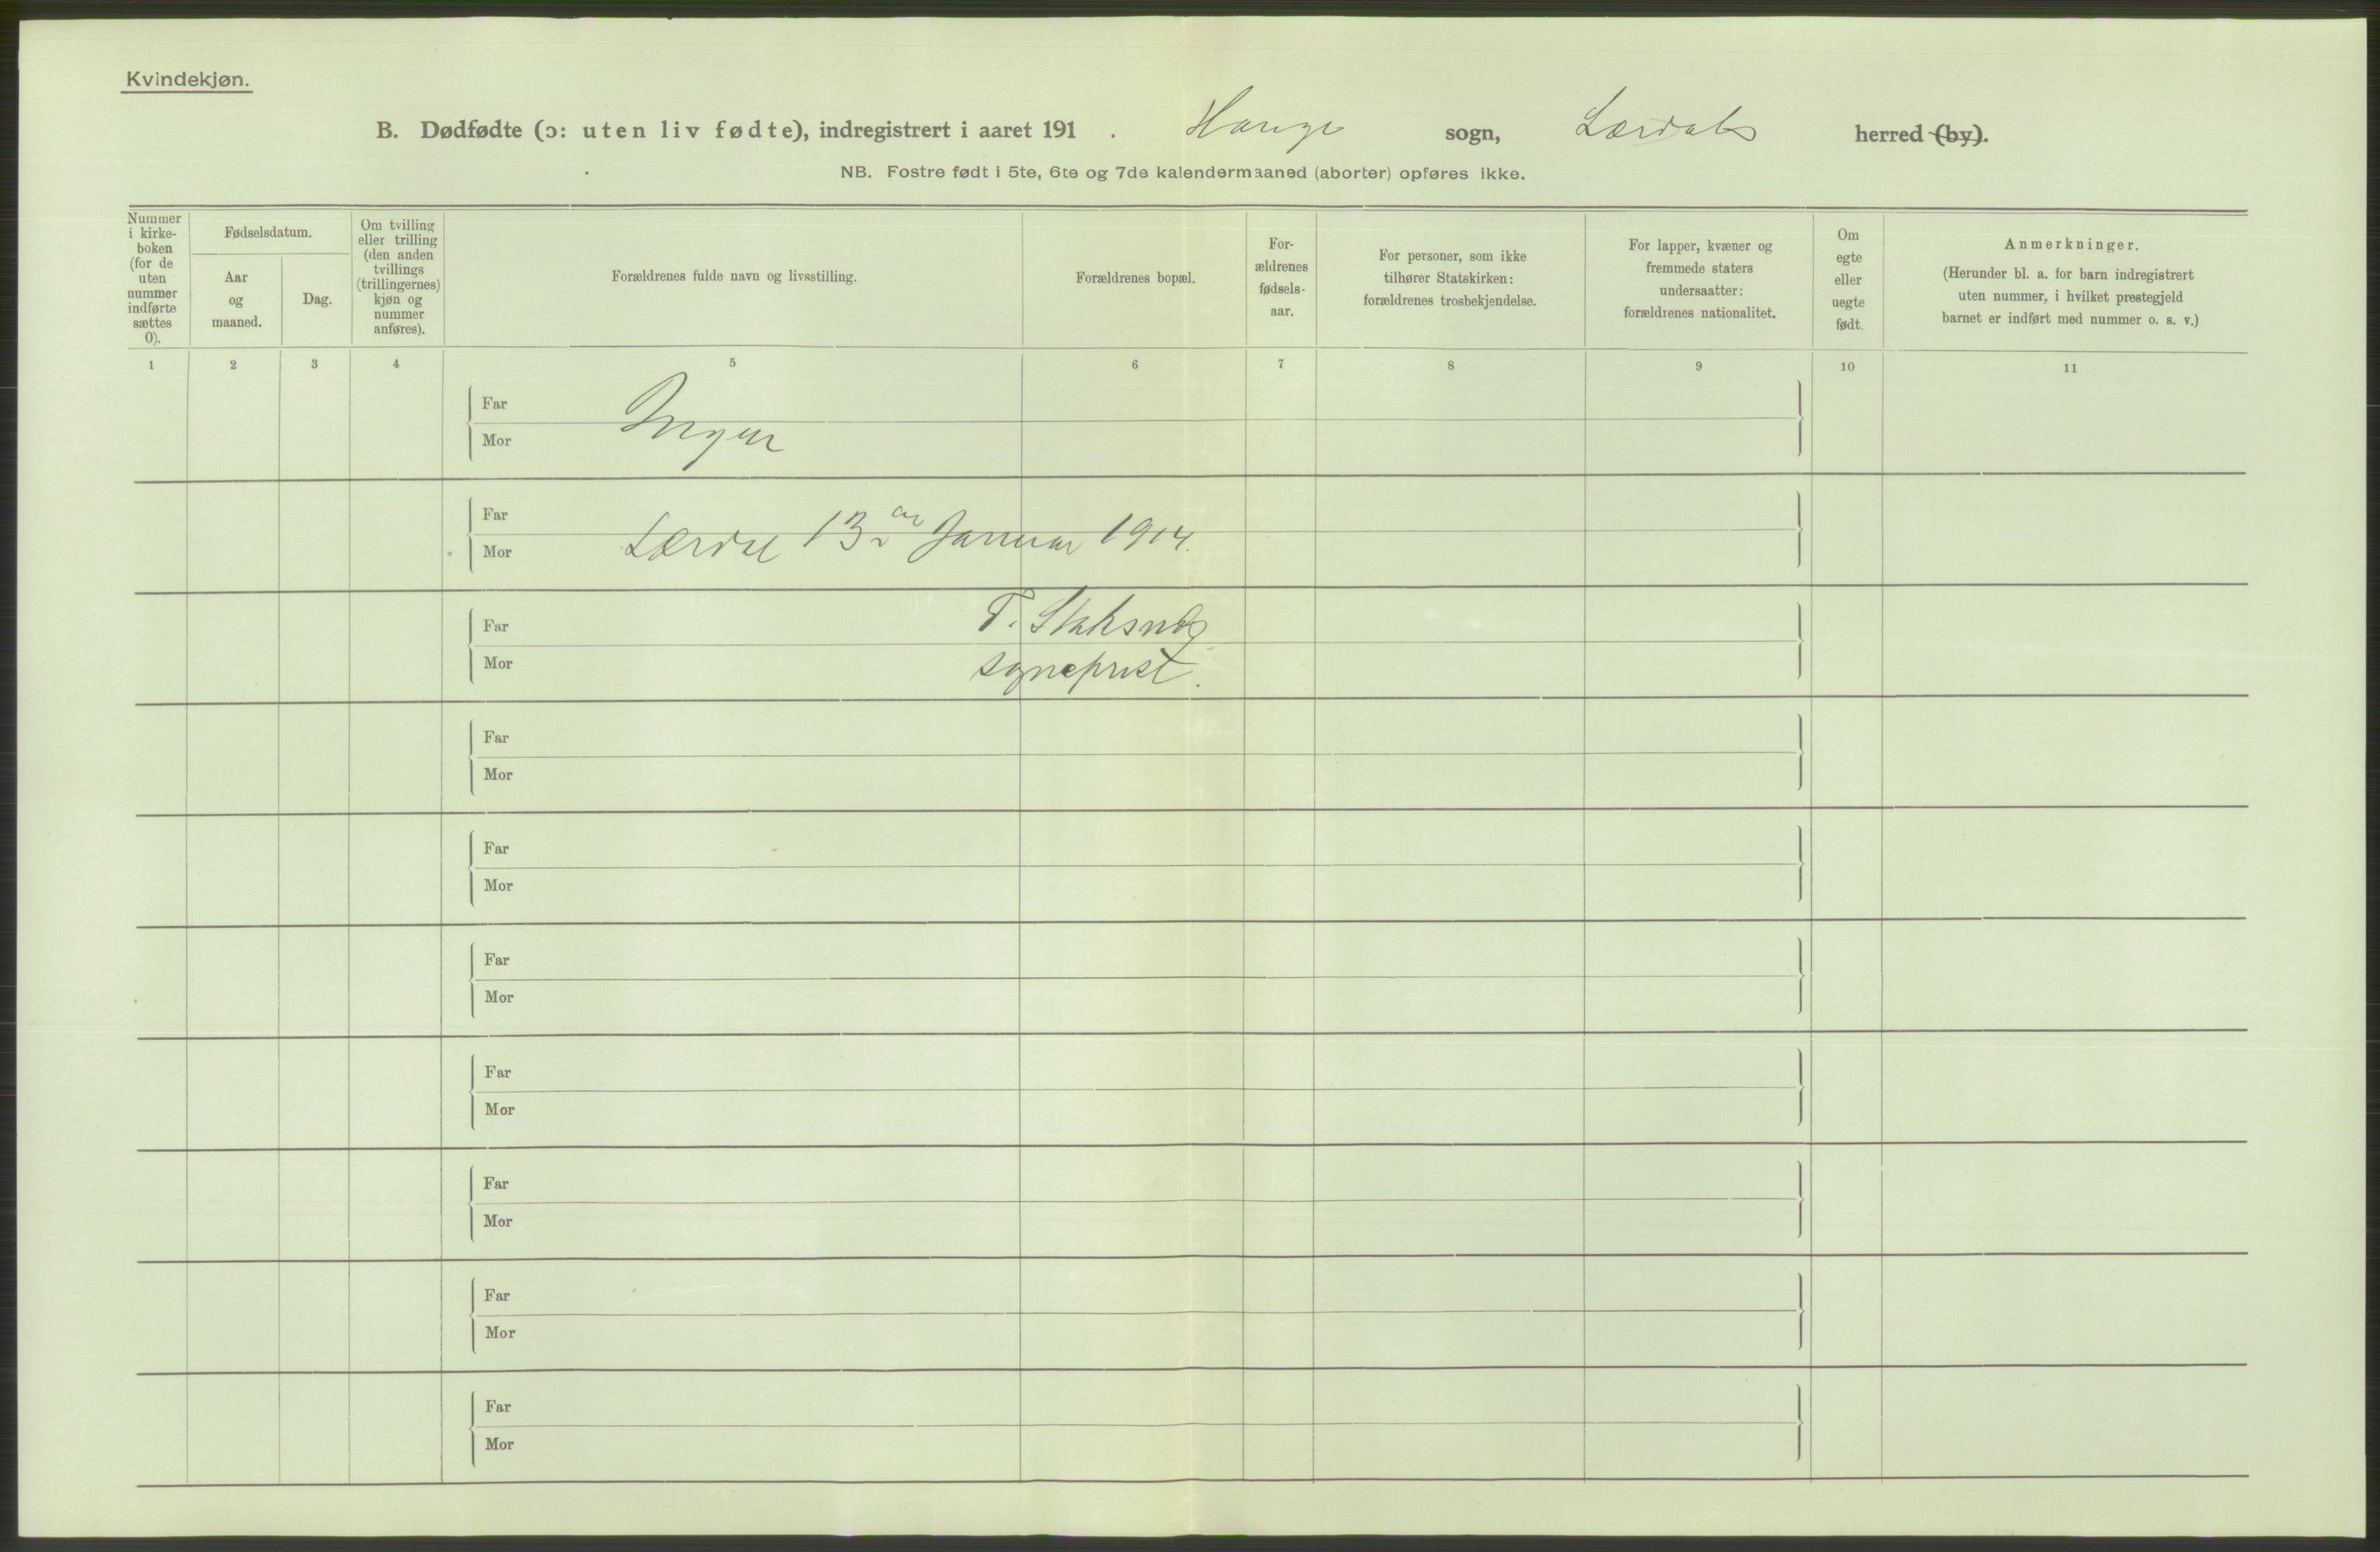 Kvindekjøn.
B. Dødfødte (ɔ: uten liv fødte), indregistrert i aaret 191 . Hauge sogn, Lærdals herred (by).
NB. Fostre født i 5te, 6te og 7de kalendermaaned (aborter) opføres ikke.
Nummer
i kirke-
boken
(for de
uten
nummer
indførte
sættes
0).
Fødselsdatum.
Aar
og
maaned.
Dag.
Om tvilling
eller trilling
(den anden
tvillings
(trillingernes)
kjøn og
nummer
anføres).
Forældrenes fulde navn og livsstilling.
Forældrenes bopæl.
For-
ældrenes
fødsels-
aar.
For personer, som ikke
tilhører Statskirken:
forældrenes trosbekjendelse.
For lapper, kvæner og
fremmede staters
undersaatter:
forældrenes nationalitet.
Om
egte
eller
uegte
født.
Anmerkninger.
(Herunder bl. a. for barn indregistrert
uten nummer, i hvilket prestegjeld
barnet er indført med nummer o. s. v.)
1 2 3 4 5 6 7 8 9 10 11
Far
Ingen
Mor
Far
Lærdal 13de Januar 1914.
Mor
Far T.
Mor sogneprest.
Far
Mor
Far
Mor
Far
Mor
Far
Mor
Far
Mor
Far
Mor
Far
Mor